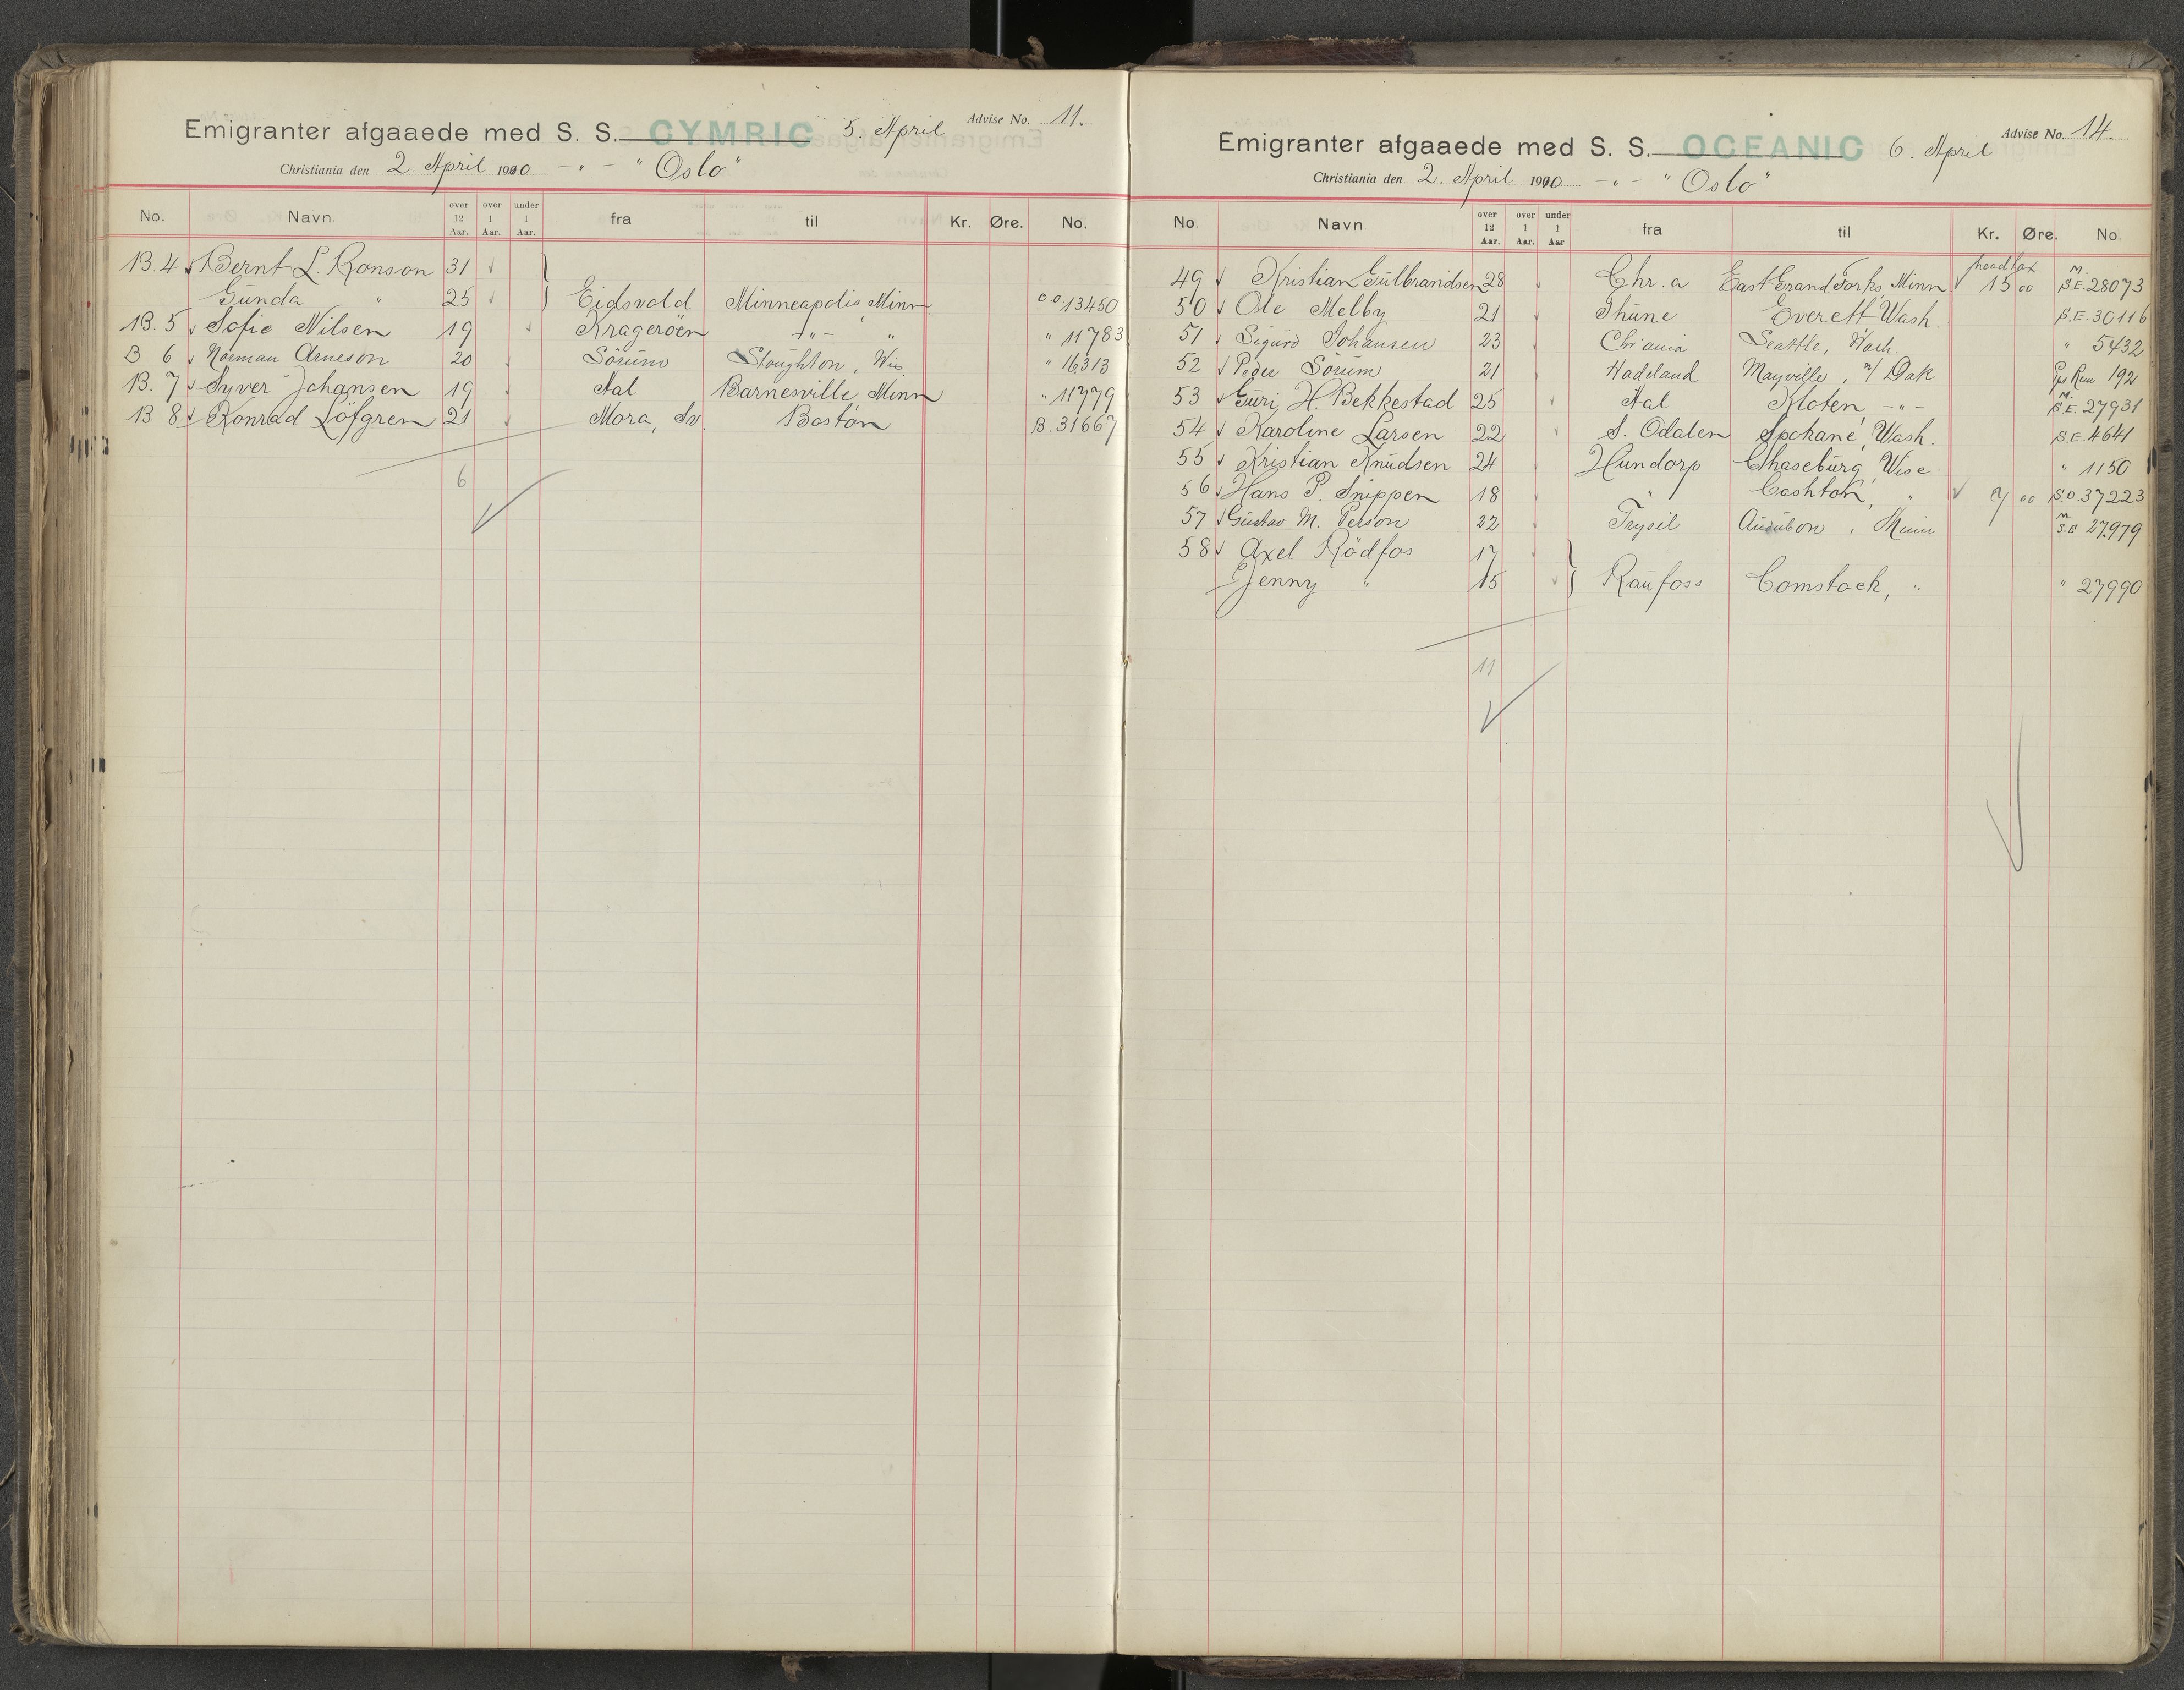 Emigranter afgaaede med S. S. CYMRIC 5. April Advise No. 11.
Christiania den 2. April 1910 - " - "Oslo"
No. Navn over 12 Aar. over 1 Aar. under 1 Aar. fra til Kr. Øre. No.
B. 4 Bernt L. Ronson 31
Gunda " 25 Eidsvold Minneapolis, Minn 13450
B. 5 Sofie Nilsen 19 Kragerøen -"- " " 11783
B 6 Norman Arneson 20 Sörum Stoughton, Wis. " 16313
B. 7 Syver Johansen 19 Aal Barnesville, Minn " 11779
B 8 Konrad Löfgren 21 Mora, Sv. Boston B. 31667
6
Emigranter afgaaede med S. S. OCEANIC 6. April Advise No. 14.
Christiania den 2. April 1910 - " - "Oslo"
No. Navn over 12 Aar. over 1 Aar. under 1 Aar fra til Kr. Øre. No.
headtax
49 Kristian Gulbrandsen 28 Chr.a East Grand Forks, Minn 15 00 M. S.E. 28073
50 Ole Melby 21 Thune Everett Wash. S.E. 30116
51 Sigurd Johansen 23 Chr'ania Seattle, Wash. " 5432
52 Peder Sörum 21 Hadeland Mayville, N/ Dak 192
53 Guri H. Bekkestad 25 Aal Kloten, -"- M. S.E. 27931
54 Karoline Larsen 22 S. Odalen Spokane, Wash. S.E. 4641
55 Kristian Knudsen 24 Hundorp Chaseburg, Wisc. " 1150
56 Hans P. Snippen 18 " Cashton, " 9 00 S.O. 37223
57 Gustav M. Person 22 Trysil Audubon, Minn M. S.E. 27979
58 Axel Rödfos 17
Jenny " 15 Raufoss Comstock, " " 27990
11